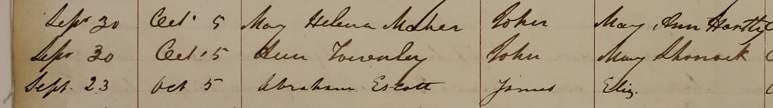 Sepr 30 Octr 5 May Helena Maher John Mary Ann Hartly
Sepr 30 Octr 5 Ann Townley John Mary
Sept. 23 Oct 5 Abraham Escott James Eliz.